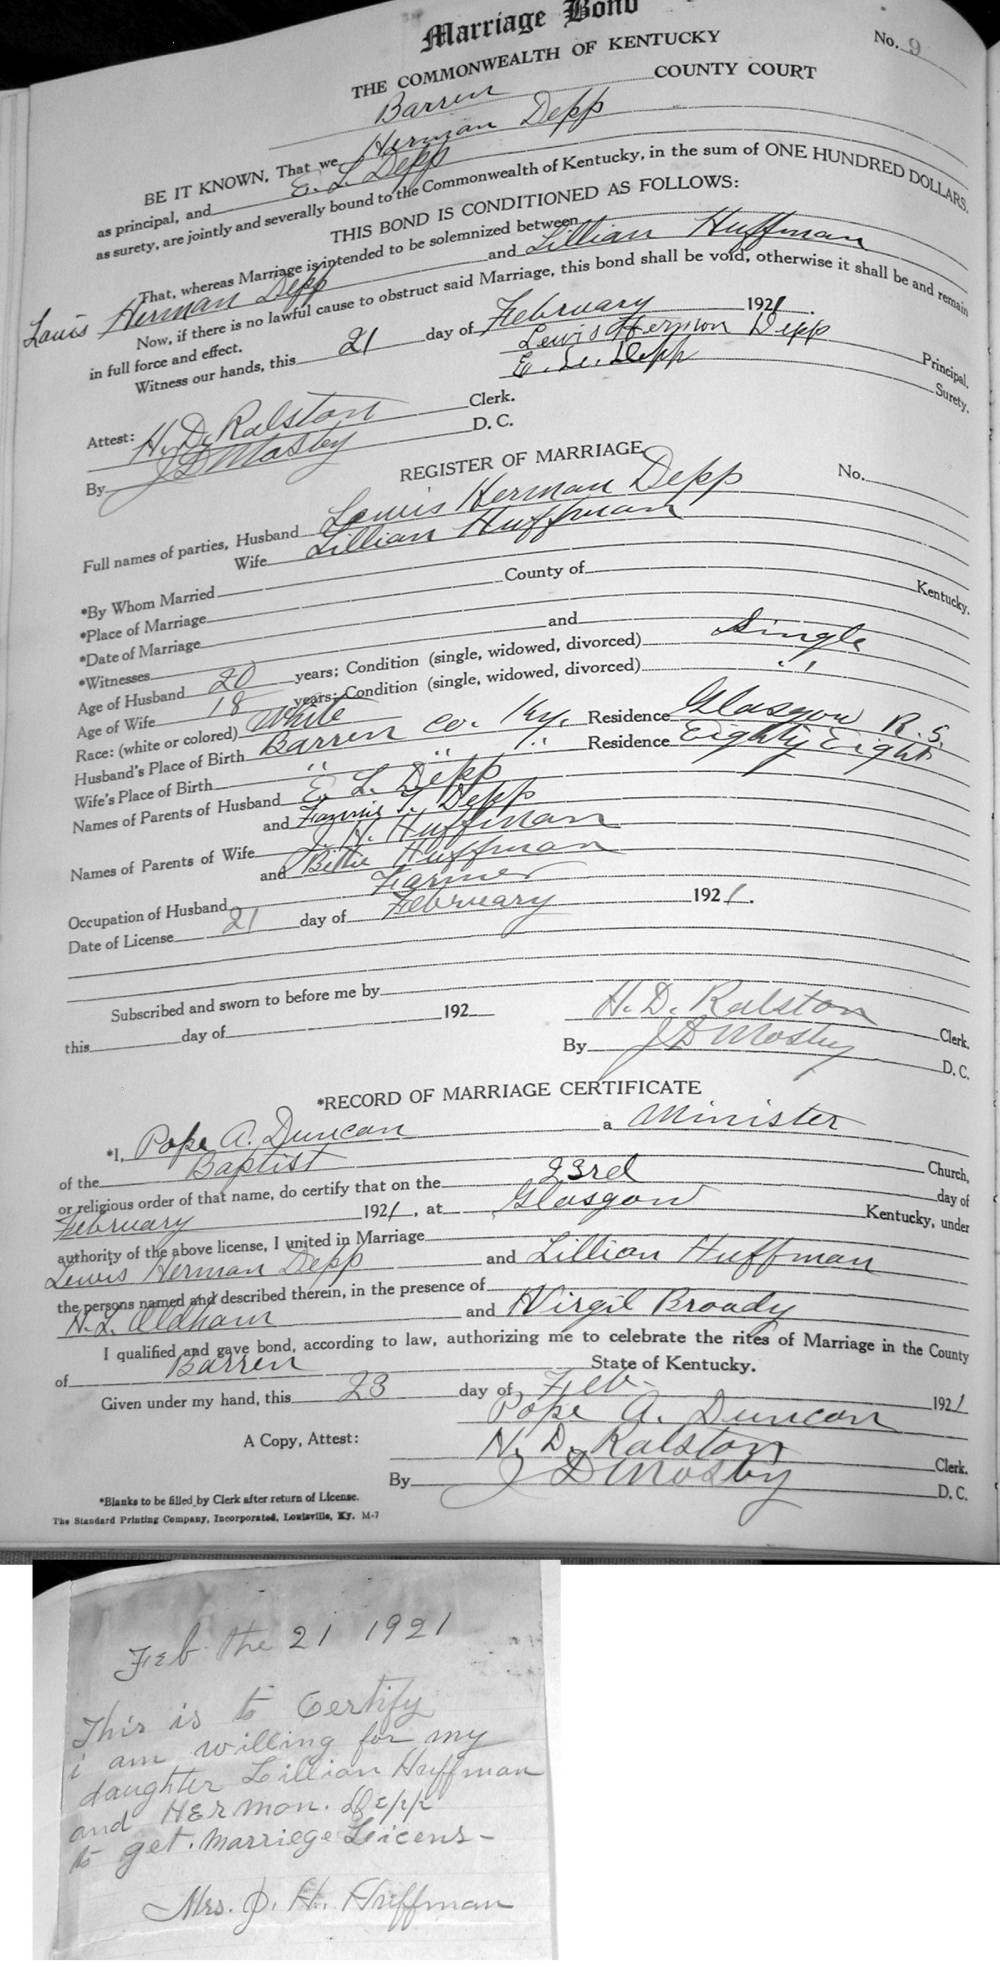 Marriage Bond
No. 9
THE COMMONWEALTH OF KENTUCKY
Barren COUNTY COURT
BE IT KNOWN, That we Herman Depp
as principal, and E. L. Depp
as surety, are jointly and severally bound to the Commonwealth of Kentucky, in the sum of ONE HUNDRED DOLLARS.
THIS BOND IS CONDITIONED AS FOLLOWS:
That, whereas Marriage is intended to be solemnized between
Louis Herman Depp and Lillian Huffman
Now, if there is no lawful cause to obstruct said Marriage, this bond shall be void, otherwise it shall be and remain
in full force and effect.
Witness our hands, this 21 day of February 1921.
Lewis Hermon Depp Principal.
E. L. Depp Surety.
Attest: H. D. Ralston Clerk.
By J D Mosby D. C.
REGISTER OF MARRIAGE
No.
Full names of parties, Husband Louis Herman Depp
Wife Lillian Huffman
*By Whom Married
*Place of Marriage County of Kentucky.
*Date of Marriage
*Witnesses and
Age of Husband 20 years; Condition (single, widowed, divorced) Single
Age of Wife 18 years; Condition (single, widowed, divorced) " "
Race: (white or colored) White
Husband's Place of Birth Barren Co. Ky. Residence Glasgow R. 5.
Wife's Place of Birth " " " Residence Eighty Eight
Names of Parents of Husband E. L. Depp
and Fannie T. Depp
Names of Parents of Wife J. H. Huffman
and Bittie Huffman
Occupation of Husband Farmer
Date of License 21 day of February 1921.
Subscribed and sworn to before me by
this day of 192 H. D. Ralston Clerk.
By J D Mosby D. C.
*RECORD OF MARRIAGE CERTIFICATE
*I, Pope A. Duncan a Minister
of the Baptist Church,
or religious order of that name, do certify that on the 23rd day of
February 1921, at Glasgow Kentucky, under
authority of the above license, I united in Marriage
Lewis Herman Depp and Lillian Huffman
the persons named and described therein, in the presence of
H. L. Oldham and Virgil Broady
I qualified and gave bond, according to law, authorizing me to celebrate the rites of Marriage in the County
of Barren State of Kentucky.
Given under my hand, this 23 day of Feb. 1921
Pope A. Duncan
A Copy, Attest: H. D. Ralston Clerk.
By J D Mosby D. C.
*Blanks to be filled by Clerk after return of License.
The Standard Printing Company, Incorporated, Louisville, Ky. M-7
Feb the 21 1921
This is to Certify
i am willing for my
daughter Lillian Huffman
and HErmon. Depp
to get. marriege Licens-
Mrs. J. H. Huffman